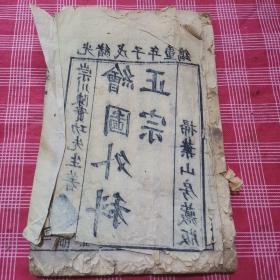 光緒戊子年重鐫
崇川陳實功先生著
繪圖外科
正宗
掃葉山房藏版